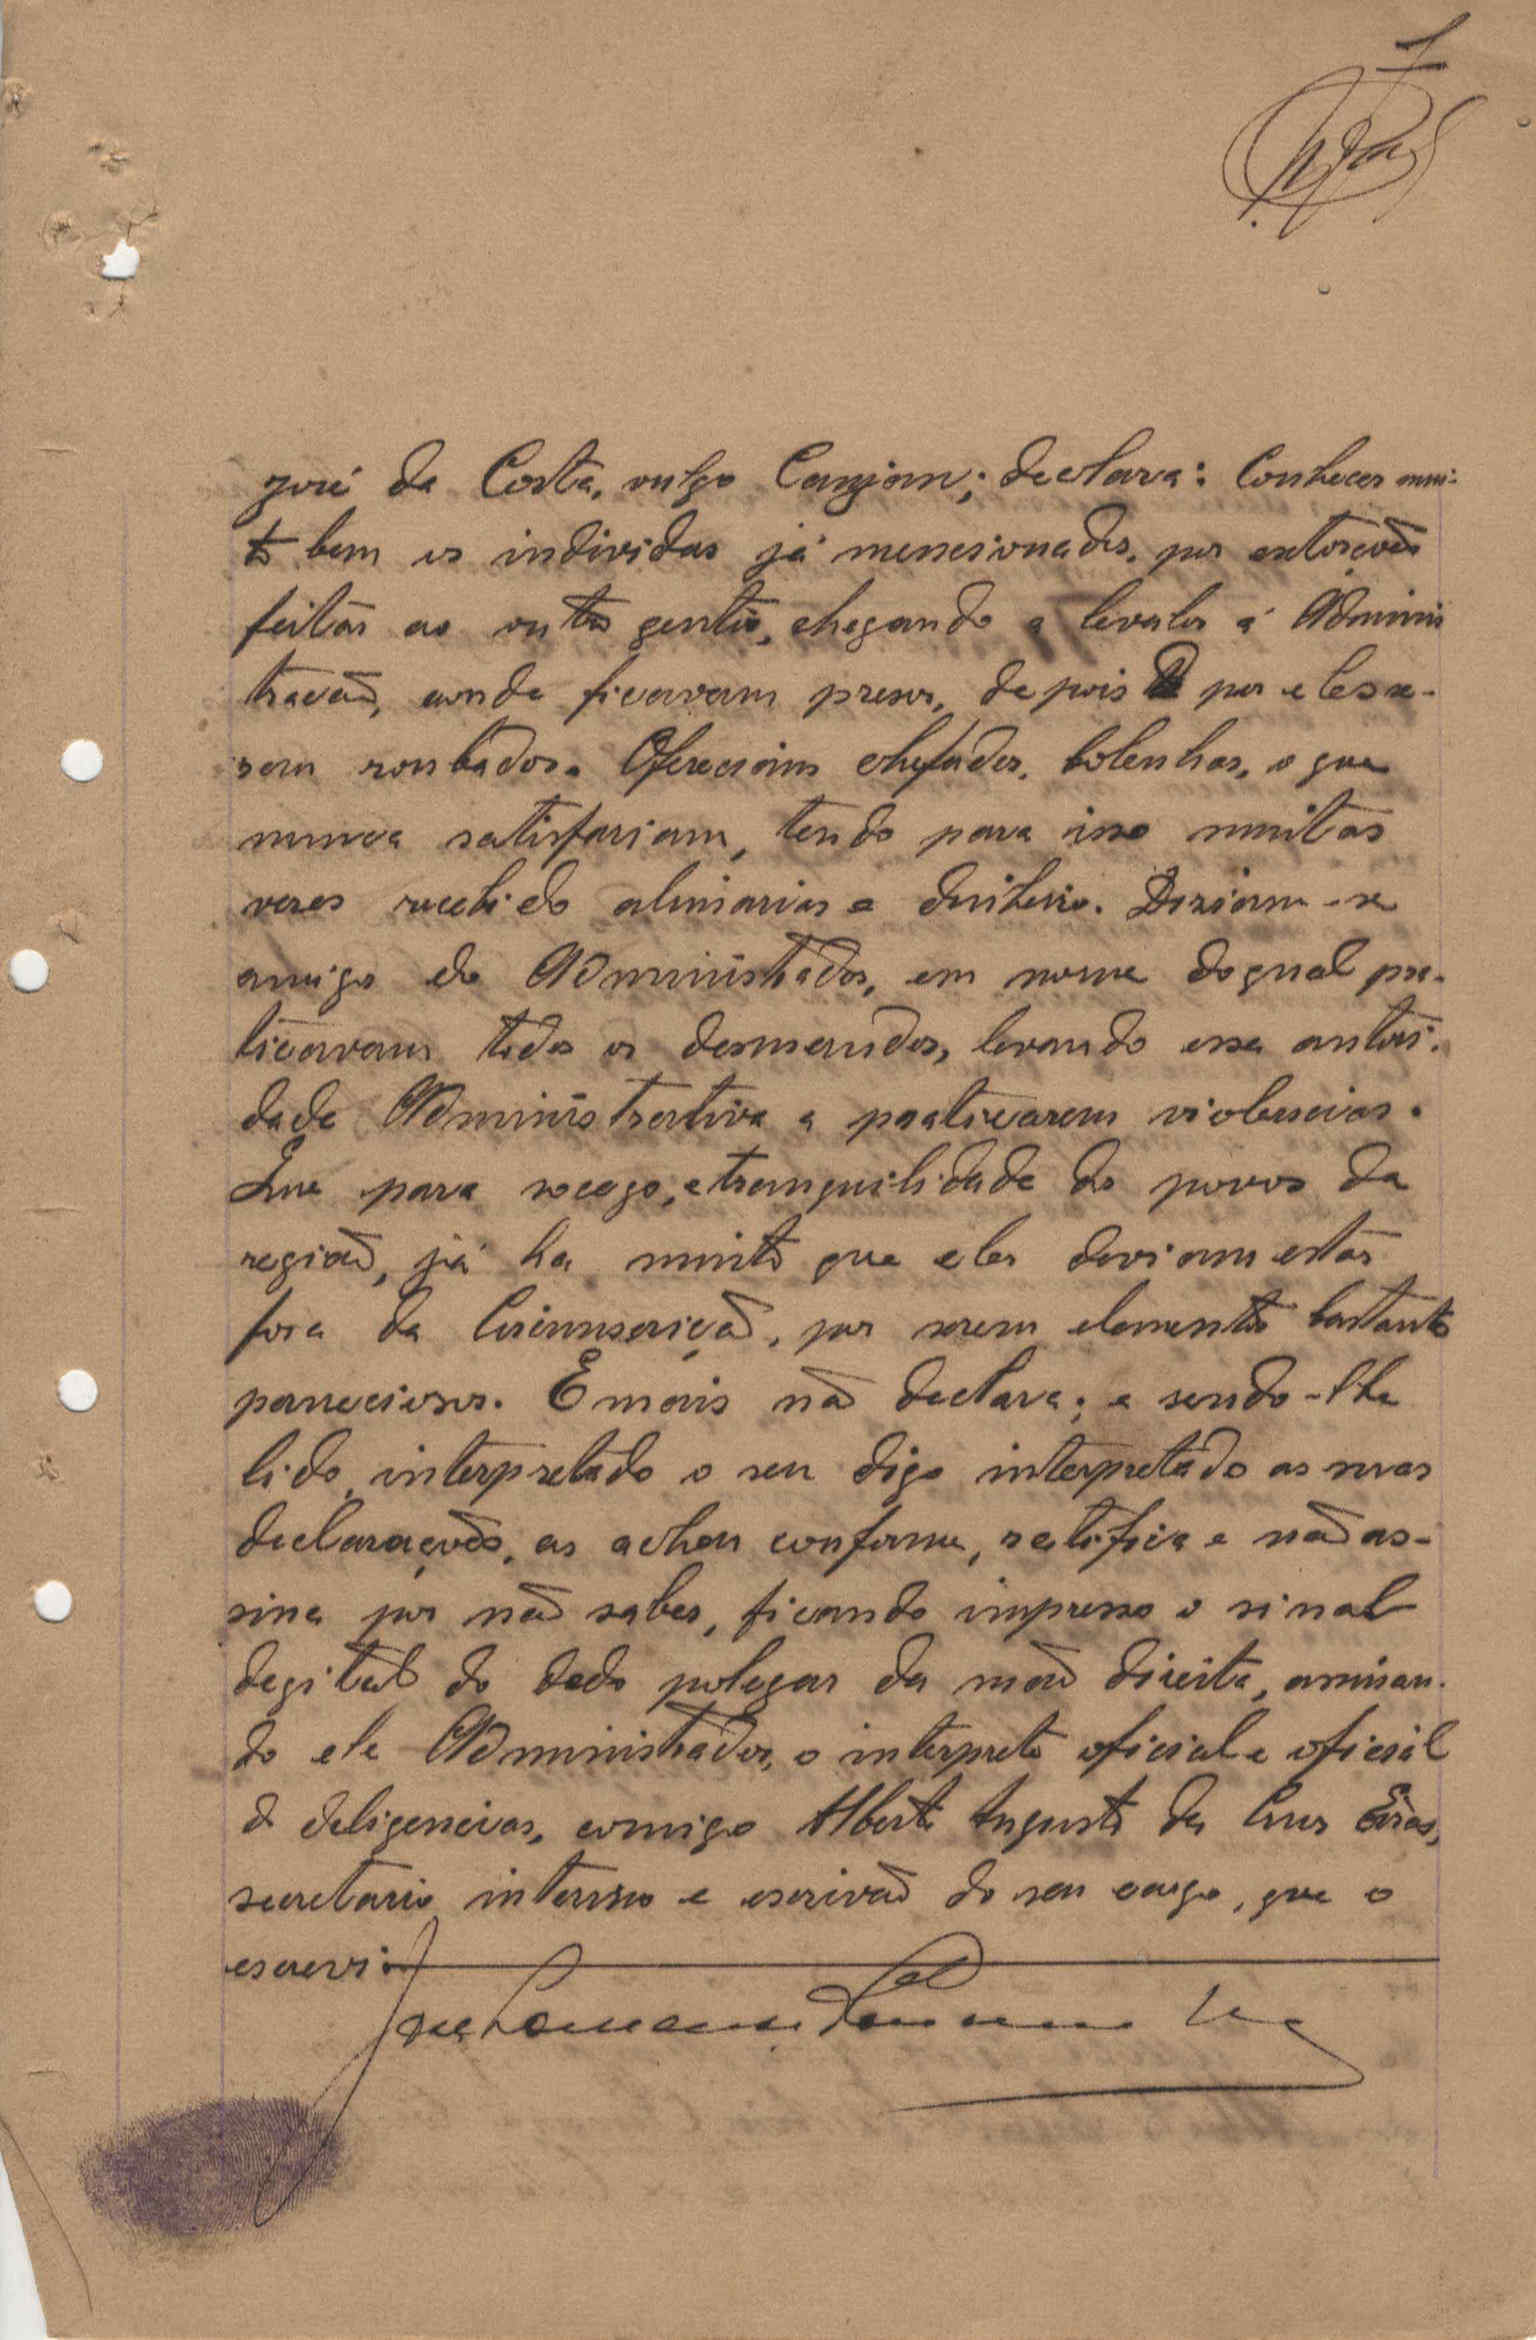 7
José da Costa, vulgo Canjam; declara: Conhecer mui-
to bem os individos já mensionados, por extorções
feitas ao outro gentio, chegando a levalos á Adminis
tração, aonde ficavam presos, depois de por eles se-
rem roubados. Ofereciam chefados, tolenhas, o que
nunca satisfariam, tendo para isso muitas
veses recebido alimarias e dinheiro. Diziam-se
amigo do Administrador, em nome do qual pra-
ticavam todos os desmandos, levando essa autori-
dade Administrativa a praticarem violencias.
Que para socego, e tranquilidade do povos da
região, já ha muito que eles deviam estar
fora da Circunscrição, por serem elementos bastante
perneciosos. E mais não declara; e sendo-lhe
lido, interpretado o seu digo interpretado as suas
declarações, as achou conforme, retifica e não as-
sina por não saber, ficando impresso o sinal
degital do dedo polegar da mão direita, assinan-
do ele Administrador, o interprete oficial e oficial
de deligencias, comigo Alberto Augusto da Cruz Eiras,
secretario interino e escrivão do seu cargo, que o
escrevi